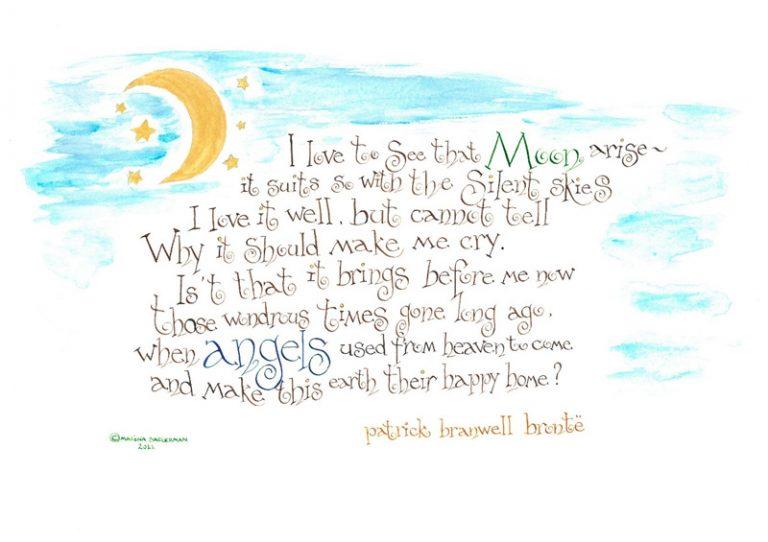 I love to See that Moon arise~
it suits so with the Silent skies
I love it well, but cannot tell
Why it Should make me cry.
Is't that it brings before me now
those wondrous times gone long ago,
when angels used from heaven to come
and make this earth their happy home?
patrick branwell brontë
©
2021